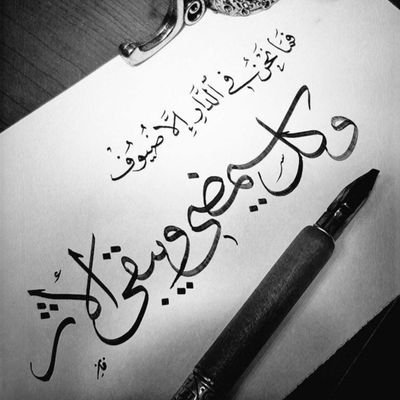 فما نحنُ في الدَّارِ إلَّا ضُيُوفٌ
وكل سيمضي ويبقى الأثر